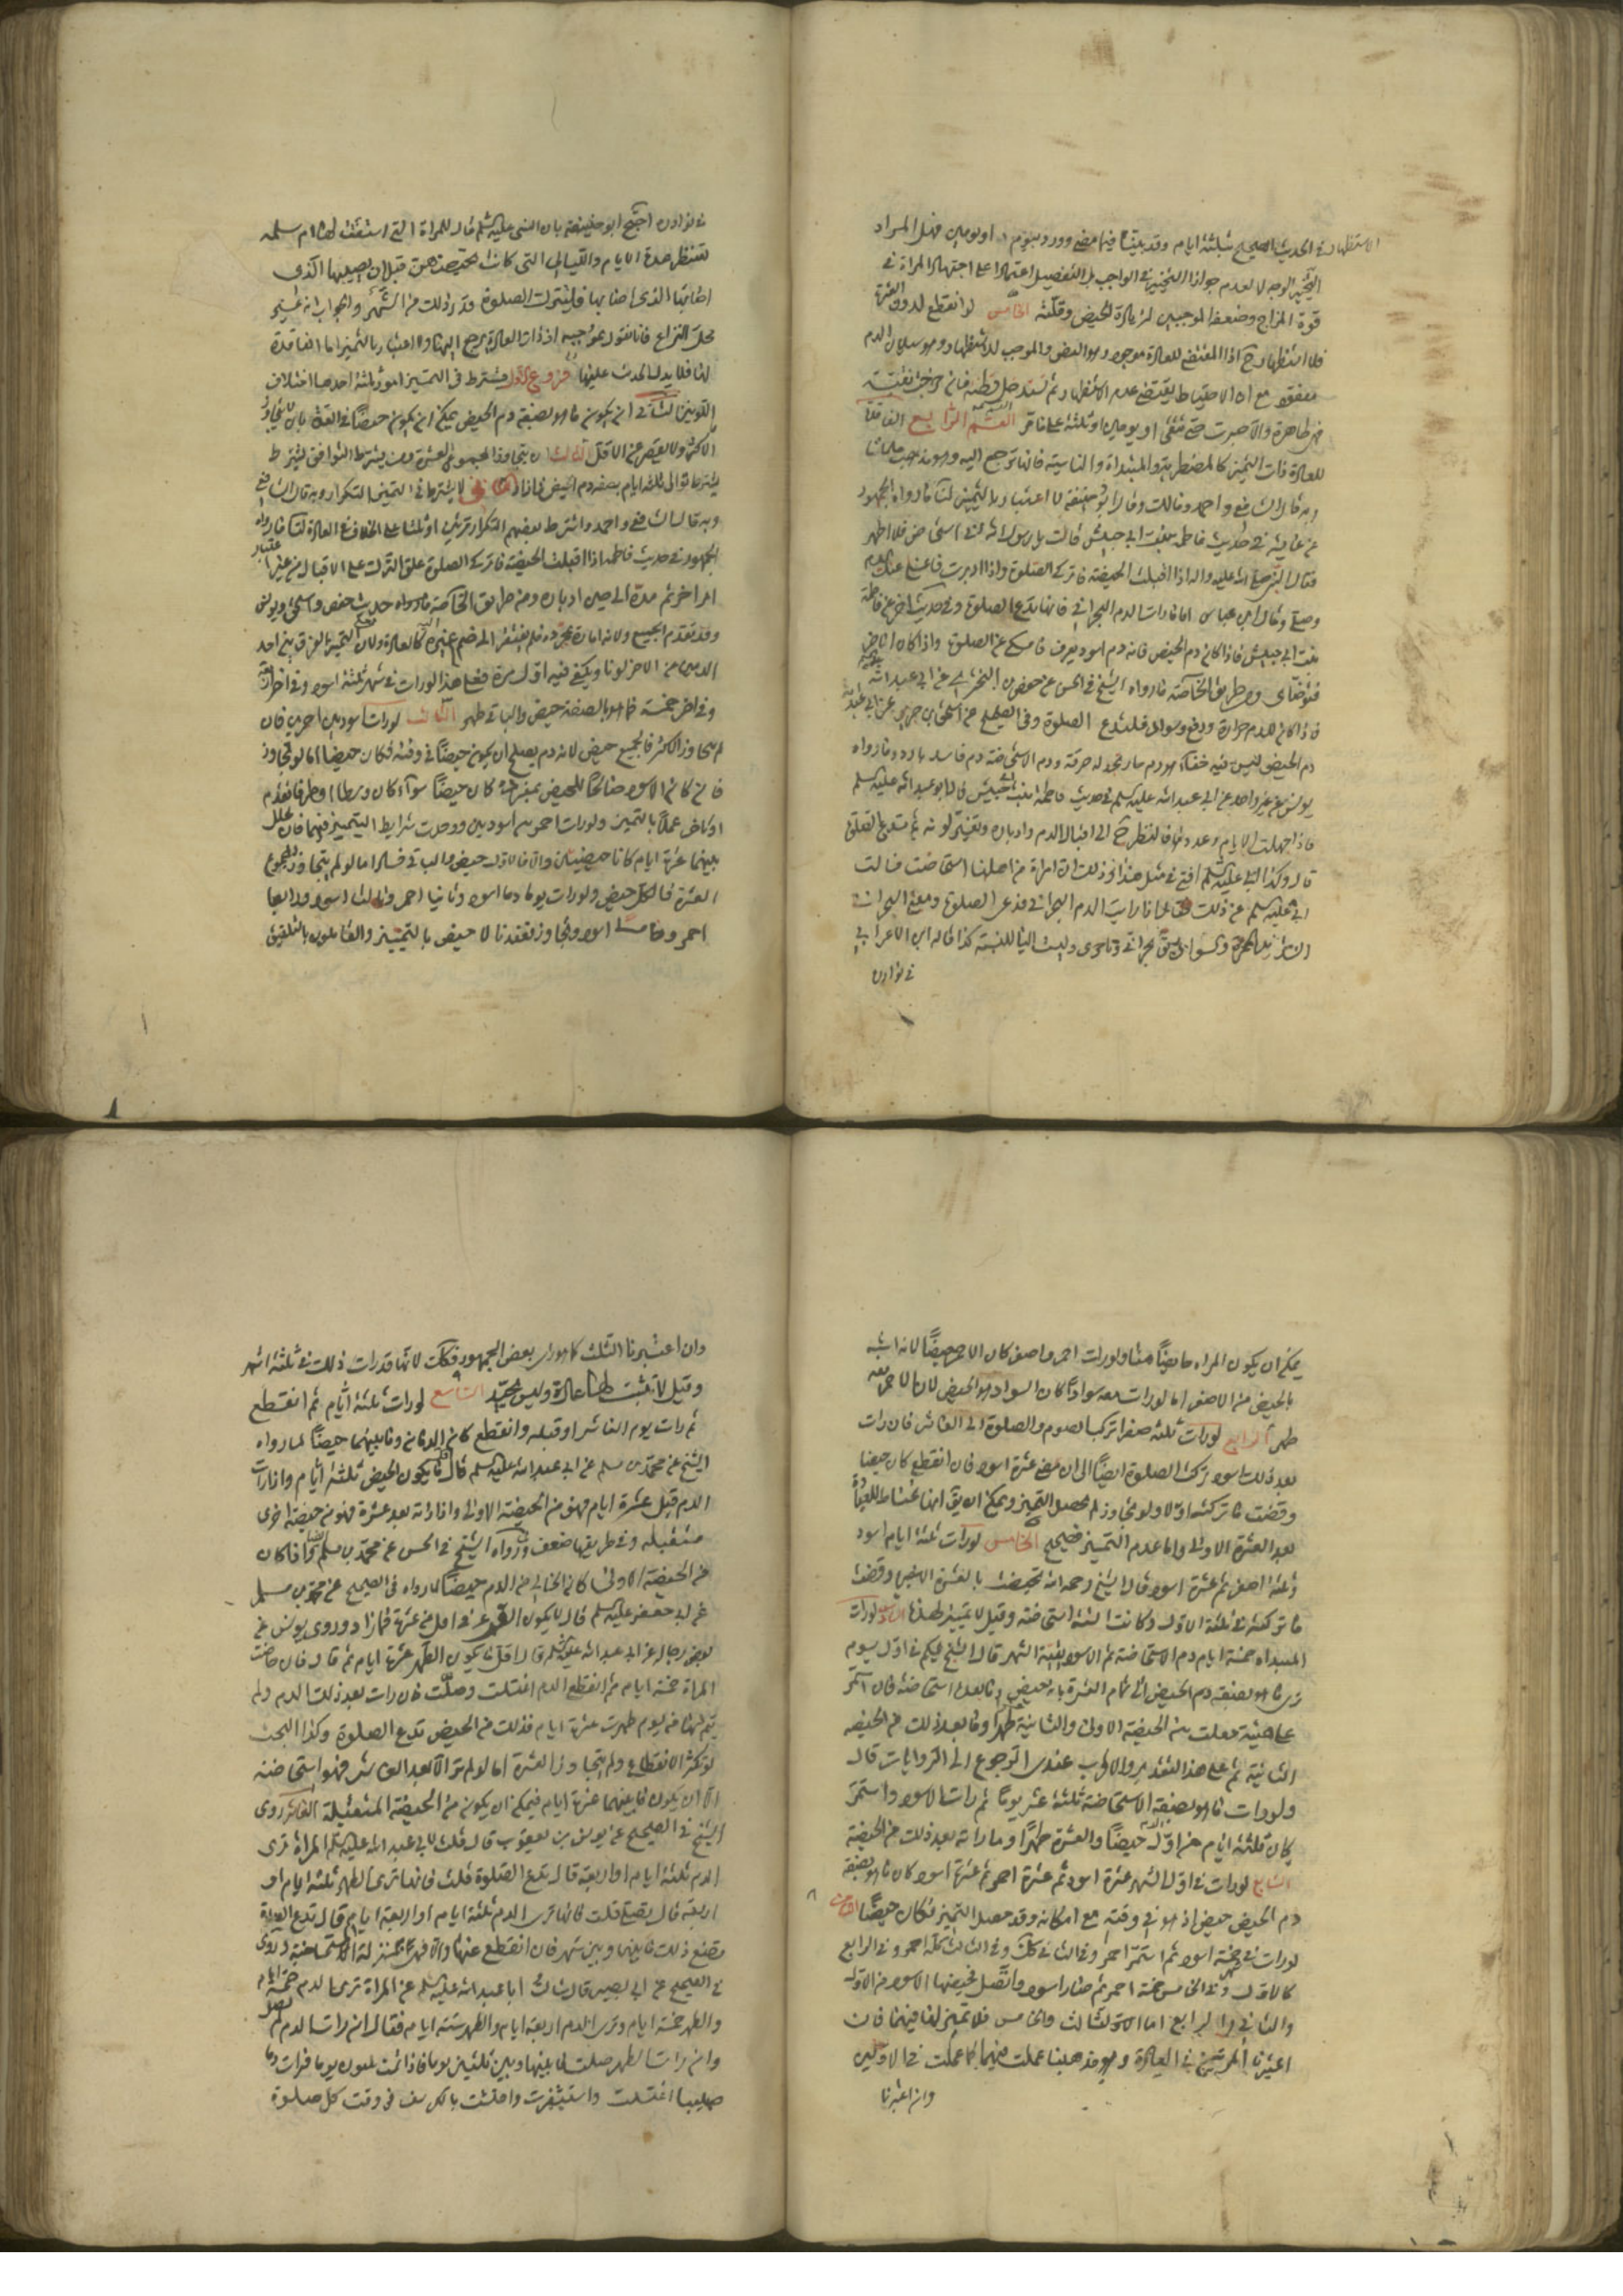 الاستظهار في الحديث الصحيح بثلثة ايام وقد بيناه فيما مضى وورد بيوم او يومين فهل المراد
التخيير الوجه لا لعدم جواز التخيير في الواجب بل التفصيل اعتمادا على اجتهاد المراة في
قوة المزاج وضعفه الموجبين لزيادة الحيض وقلته الخامس لو انقطع لدون العشرة
فلا استظهار ح اذ المقتضى للعادة موجود وهو الغرض والموجب للاستظهار وهو سيلان الدم
مفقود مع ان الاحتياط يقتضي عدم الاستظهار ثم تستدخل قطنة فان خرجت نقية
فهي طاهرة والا صبرت حتى تنقى او يومين او ثلثة على ما مر القسم الرابع الفاقدة
للعادة ذات التميز كالمضطربة والمبتداة والناسية فانها ترجع اليه وهو مذهب علمائنا
وبه قال الشافعي واحمد ومالك وقال ابو حنيفة لا اعتبار بالتميز لنا ما رواه الجمهور
عن عايشة في حديث فاطمة بنت ابي حبيش قالت يا رسول الله اني استحاض فلا اطهر
فقال النبي صلى الله عليه واله اذا اقبلت الحيضة فاتركي الصلوة واذا ادبرت فاغسلي عنك الدم
وصلي وقال ابن عباس اما ما رات الدم البحراني فانها تدع الصلوة وفي حديث اخر عن فاطمة
بنت ابي حبيش فاذا كان دم الحيض فانه دم اسود يعرف فامسكي عن الصلوة واذا كان الاخر
فتوضأي ومن طريق الخاصة ما رواه الشيخ في الحسن عن حفص بن البختري عن ابي عبد الله
فاذا كان للدم حرارة ودفع وسواد فلتدع الصلوة وفي الصحيح عن اسحق بن جرير عن ابي عبد الله
دم الحيض ليس فيه خفاء هو دم حار تجد له حرقة ودم الاستحاضة دم فاسد بارد وما رواه
يونس عن غير واحد عن ابي عبد الله عليه السلم في حديث فاطمة بنت ابي حبيش قال ابو عبد الله عليه السلم
فاذا جهلت الايام وعددها فلتنظر ح الى اقبال الدم وادباره وتغير لونه ثم تدع الصلوة
قال وكذا ابي عليه السلم افتى في مثل هذا وذلك ان امراة من اهلنا استحاضت فسالت
ابي عليه السلم عن ذلك فقال اذا رايت الدم البحراني فدعي الصلوة ومعنى البحراني
الشديد الحمرة والسواد يق بحراني وباحري وليست الياء للنسبة كذا قاله ابن الاعرابي
في نوادره
في نوادره احتج ابو حنيفة بان النبي عليه السلم قال للمراة التي استفتت لها ام سلمة
لتنظر عدة الايام والليالي التي كانت تحيضهن قبل ان يصيبها الذي
اصابها الذي اصابها فلتترك الصلوة قدر ذلك من الشهر والجواب انه غير
محل النزاع فانا نقول بموجبه اذ ذات العادة ترجع اليها ولا اعتبار بالتميز اما الفاقدة
لها فلا يدل الحديث عليها فروع الاول يشترط في التميز امور ثلثة احدها اختلاف
اللونين الثاني ان يكون ما هو بصفة دم الحيض يمكن ان يكون حيضا في العدة بان لا يتجاوز
الاكثر ولا يقصر عن الاقل الثالث ان يتجاوز المجموع العشرة ومن يشترط التوالي يشترط
يشترط توالي ثلثة ايام بصفة دم الحيض فاذا الثاني لا يشترط في التميز التكرار وبه قال الشافعي
وبه قال الشافعي واحمد واشترط بعضهم التكرار مرتين او ثلثا على الخلاف في العادة لنا ما رواه
الجمهور في حديث فاطمة اذا اقبلت الحيضة فاتركي الصلوة علق الترك على الاقبال من غير اعتبار
امر اخر ثم مدة الى حين ادباره ومن طريق الخاصة ما رواه حديث حفص واسحق ويونس
وقد تقدم الجميع ولانه امارة بمجرده فلم يفتقر الى ضم غيره اليه كالعادة ولان معنى التميز الفرق بين احد
الدمين من الاخر لونا ويكفي فيه اول مرة فعلى هذا لو رات في شهر ثلثة اسود وفي اخر اربعة
وفي اخر خمسة فما هو بالصفة حيض والباقي طهر الثالث لو رات اسود بين احمرين فان
لم يتجاوز الاكثر فالجميع حيض لانه دم يصلح ان يكون حيضا في وقته فكان حيضا اما لو تجاوز
فان كان الاسود صالحا للحيض بمفرده كان حيضا سواء كان وسطا او طرفا تقدم
او تاخر عملا بالتميز ولو رات احمر بين اسودين ووجدت شرايط التميز فيهما فان تخلل
بينهما عشرة ايام كانا حيضتين والا فالاول حيض والباقي فساد اما لو لم يتجاوز المجموع
العشرة فالكل حيض ولو رات يوما دما اسود وثانيا احمر وثالثا اسود ورابعا
احمر وخامسا اسود وتجاوز فعندنا لا حيض بالتميز والقائلون بالتلفيق
يمكن ان يكون المراه حايضا هنا ولو رات احمر واصفر كان الاحمر حيضا لانه اشبه
بالحيض من الاصفر اما لو رات معه سوادا كان السواد هو الحيض لان الاحمر معه
طهر الرابع لو رات ثلثة صفرا تركت الصوم والصلوة الى العاشر فان رات
بعد ذلك اسود تركت الصلوة ايضا الى ان يمضي عشرة اسود فان انقطع كان حيضا
وقضت ما تركته اولا ولو تجاوز لم يحصل التميز ويمكن ان يق انها تحتاط للعبادة
بعد العشرة الاولى واما عدم التميز فصحيح الخامس لو رات ثلثة ايام اسود
وثلثة اصفر ثم عشرة اسود قال الشيخ رحمه الله تحيضت بالعشرة الاخير وقضت
ما تركته في ثلثة الاول وكانت الستة استحاضة وقيل لا تمييز لهذه السادس لو رات
المبتداه خمسة ايام دم الاستحاضة ثم الاسود بقية الشهر قال الشيخ يحكم في اول يوم
ترى ما هو بصفة دم الحيض الى تمام العشرة بانه حيض وما بعده استحاضة فان استمر
على هيئته جعلت بين الحيضة الاولى والثانية طهرا وما بعد ذلك من الحيضه
الثانية ثم على هذا التقدير والاقرب عندي الرجوع الى الروايات قال
ولو رات ما هو بصفة الاستحاضة ثلثة عشر يوما ثم رات الاسود واستمر
كان ثلثة ايام من اول الدم حيضا والعشرة طهرا وما راته بعد ذلك من الحيضة
السابع لو رات في اول الشهر عشرة اسود ثم عشرة احمر ثم عشرة اسود كان ما هو بصفة
دم الحيض حيض اذ هو في وقته مع امكانه وقد حصل التميز فكان حيضا الثامن
لو رات في خمسة اسود ثم استمر احمر وفي الثاني كك وفي الثالث كله احمر وفي الرابع
كالاول وفي الخامس خمسة احمر ثم صار اسود واتصل فحيضها الاسود من الاول
والثاني والرابع اما الثالث والخامس فلا تميز لها فيهما فان
اعتبرنا المرتين في العادة وهو مذهبنا عملت فيهما كما عملت في الاولين
وان اعتبرنا
وان اعتبرنا الثلث كما هو راي بعض الجمهور فكك لانها قد رات ذلك في ثلثة اشهر
وقيل لا تثبت لها عادة وليس بجيد التاسع لو رات ثلثة ايام ثم انقطع
ثم رات يوم العاشر او قبله وانقطع كان الدمان وما بينهما حيضا لما رواه
الشيخ عن محمد بن مسلم عن ابي عبد الله عليه السلم قال اقل ما يكون الحيض ثلثة ايام واذا رات
الدم قبل عشرة ايام فهو من الحيضة الاولى واذا راته بعد عشرة فهو من حيضة اخرى
مستقبله وفي طريقها ضعف ورواه الشيخ في الحسن عن محمد بن مسلم وانما كان
من الحيضة الاولى كان الخالي من الدم حيضا لما رواه في الصحيح عن محمد بن مسلم
عن ابي جعفر عليه السلم قال لا يكون القرء في اقل من عشرة فما زاد وروى يونس عن
بعض رجاله عن ابي عبد الله عليه السلم قال اقل ما يكون الطهر عشرة ايام ثم قال فان حاضت
المراة خمسة ايام ثم انقطع الدم اغتسلت وصلت فان رات بعد ذلك الدم ولم
يتم لها من يوم طهرت عشرة ايام فذلك من الحيض تدع الصلوة وكذا البحث
لو تكثر الانقطاع ولم يتجاوز العشرة اما لو لم تره الا بعد العاشر فهو استحاضة
الا ان يكون ما بينهما عشرة ايام فيمكن ان يكون من الحيضة المستقبلة العاشر روى
الشيخ في الصحيح عن يونس بن يعقوب قال قلت لابي عبد الله عليه السلم المراة ترى
الدم ثلثة ايام او اربعة قال تدع الصلوة قلت فانها ترى الطهر ثلثة ايام او
اربعة قال تصلي قلت فانها ترى الدم ثلثة ايام او اربعة ايام قال تدع الصلوة
تصنع ذلك ما بينها وبين شهر فان انقطع عنها والا فهي بمنزلة المستحاضة وروى
في الصحيح عن ابي بصير قال سالت ابا عبد الله عليه السلم عن المراة ترى الدم خمسة ايام
والطهر خمسة ايام وترى الدم اربعة ايام والطهر ستة ايام فقال ان رات الدم لم تصل
وان رات الطهر صلت ما بينها وبين ثلثين يوما فاذا تمت ثلثون يوما فرات دما
صبيبا اغتسلت واستثفرت واحتشت بالكرسف في وقت كل صلوة